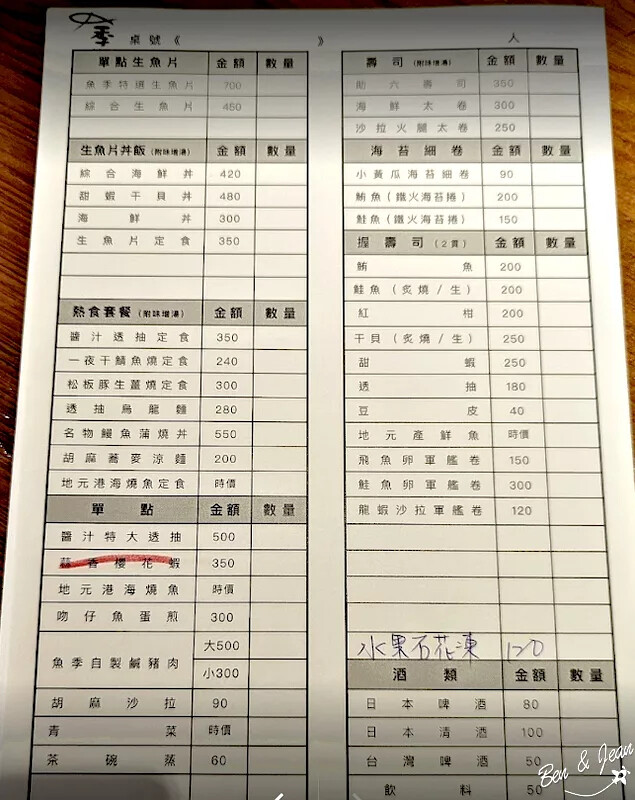 季 桌號《 》 人
單點生魚片 金額 數量
魚季特選生魚片 700
綜合生魚片 450
生魚片丼飯(附味增湯) 金額 數量
綜合海鮮丼 420
甜蝦干貝丼 480
海鮮丼 300
生魚片定食 350
熱食套餐(附味增湯) 金額 數量
醬汁透抽定食 350
一夜干鯖魚燒定食 240
松板豚生薑燒定食 300
透抽烏龍麵 280
名物鰻魚蒲燒丼 550
胡麻蕎麥涼麵 200
地元港海燒魚定食 時價
單點 金額 數量
醬汁特大透抽 500
蒜香櫻花蝦 350
地元港海燒魚 時價
吻仔魚蛋煎 300
魚季自製鹹豬肉 大500
小300
胡麻沙拉 90
青菜 時價
茶碗蒸 60
壽司(附味增湯) 金額 數量
助六壽司 350
海鮮太卷 300
沙拉火腿太卷 250
海苔細卷 金額 數量
小黃瓜海苔細卷 90
鮪魚(鐵火海苔捲) 200
鮭魚(鐵火海苔捲) 150
握壽司(2貫) 金額 數量
鮪魚 200
鮭魚(炙燒/生) 200
紅魽 200
干貝(炙燒/生) 250
甜蝦 250
透抽 180
豆皮 40
地元產鮮魚 時價
飛魚卵軍艦卷 150
鮭魚卵軍艦卷 300
龍蝦沙拉軍艦卷 120
水果石花凍 120
酒類 金額 數量
日本啤酒 80
日本清酒 100
台灣啤酒 50
飲料 50
Ben & Jean